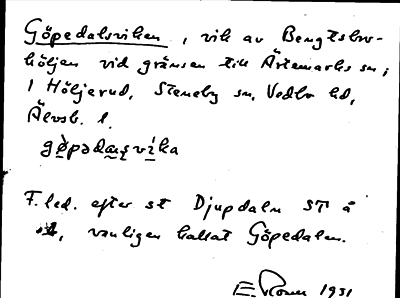 Göpedalsviken, vik av Bengtsbro-
höljen vid gränsen till Ärtemarks sn;
i Höljerud, Steneby sn, Vedbo hd,
Älvsb. l.
gø̀pədaɳsvi̇ka
F. led. efter st Djupdaln ST å
, vanligen kallat Göpedalen.
E. Rosen 1931